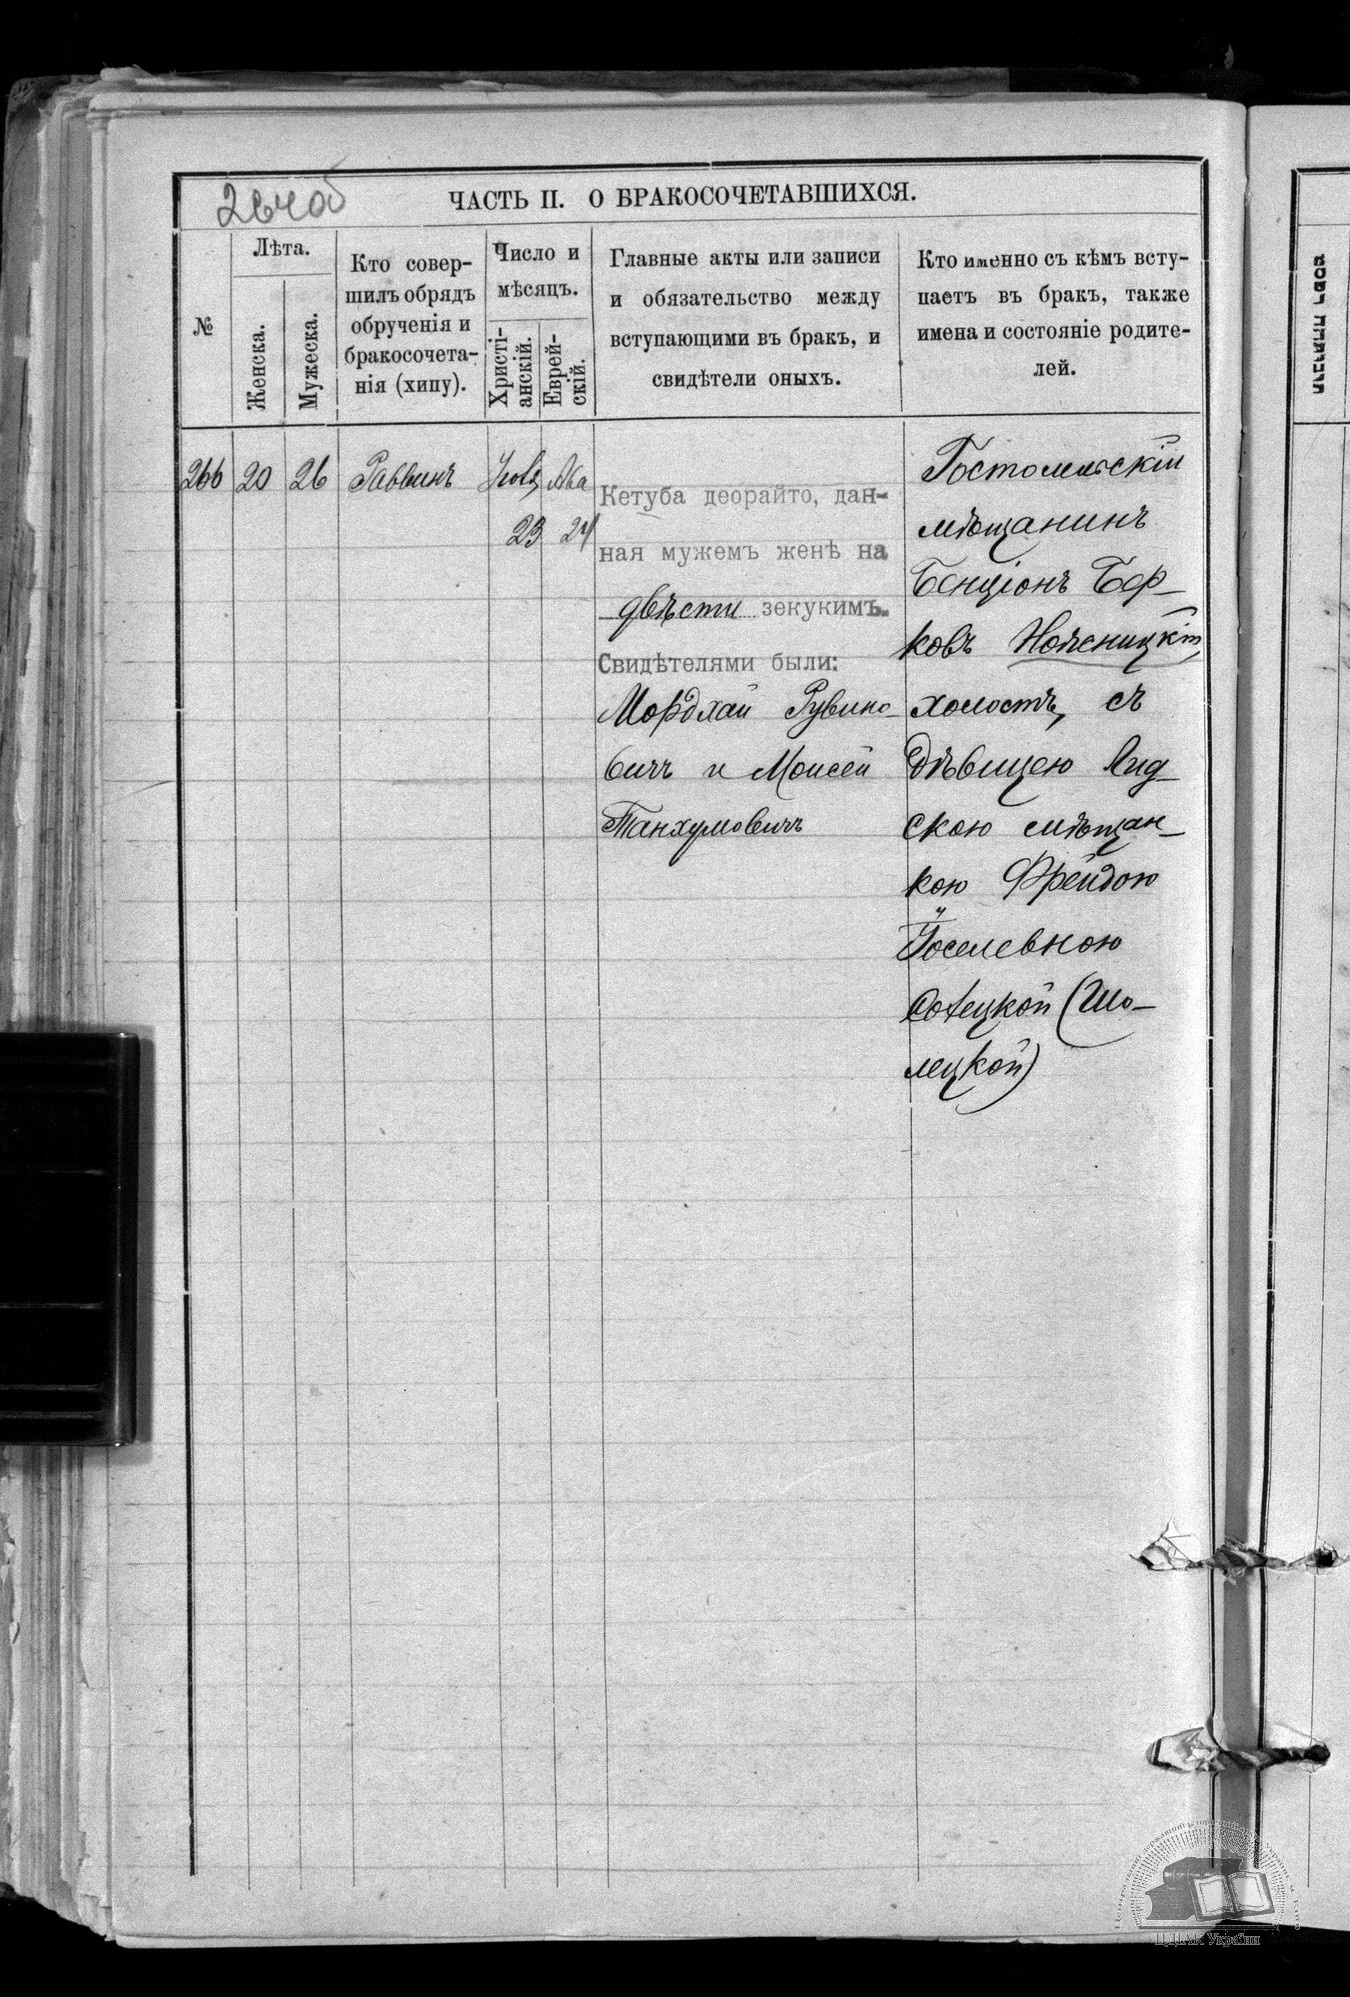 264об
ЧАСТЬ II. О БРАКОСОЧЕТАВШИХСЯ.
№
Лѣта.
Женска.
Мужеска.
Кто совер-
шилъ обрядъ
обрученія и
бракосочета-
нія (хипу).
Число и
мѣсяцъ.
Христі-
анскій.
Еврей-
скій.
Главные акты или записи
и обязательство между
вступающими въ бракъ, и
свидѣтели оныхъ.
Кто именно съ кѣмъ всту-
паетъ въ бракъ, также
имена и состояніе родите-
лей.
266
20
26
Раввинъ
23
Ава
24
Кетуба деорайто, дан-
ная мужемъ женѣ на
двѣсти зекукимъ.
Свидѣтелями были:
Мордхай Рувино-
вичъ и Моисей
Танхумовичъ
Гостомльскій
мѣщанинъ
Бенціонъ Бер-
ковъ
холостъ, съ
дѣвицею Лид-
скою мѣщан-
кою Фрейдою
Іоселевною
(Шо-
лецкой)
ЦДІАК України